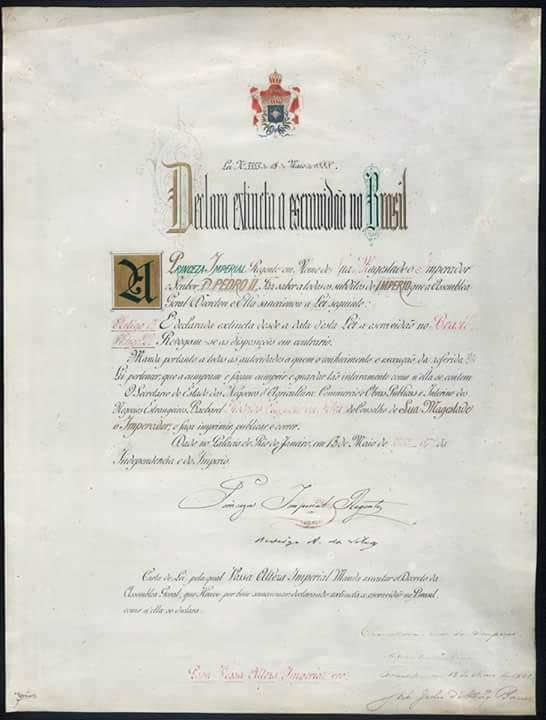 Lei Nº de 13 de Maio de
Declara extincta a escravidão no Brasil
A PRINCEZA IMPERIAL Regente em Nome de Sua Magestade o Imperador
o Senhor D. PEDRO II, Faz saber a todos os subditos do IMPERIO que a Assembléa
Geral Decretou e Ella sanccionou a Lei seguinte:
Artigo 1º É declarada extincta desde a data d'esta Lei a escravidão no Brasil.
Revogam-se as disposições em contrario.
Manda portanto a todas as autoridades a quem o conhecimento e execução da referida
Lei pertencer, que a cumpram e façam cumprir e guardar tão inteiramente como n'ella se contem.
O Secretario de Estado dos Negocios d'Agricultura, Commercio e Obras Publicas e Interino dos
Negocios Estrangeiros, Bacharel do Conselho de Sua Magestade
o Imperador, o faça imprimir, publicar e correr.
Dado no Palacio do Rio de Janeiro, em 13 de Maio de da
Independencia e do Imperio.
Princeza Imperial Regente
Rodrigo A. da Silva
Carta de Lei, pela qual Vossa Alteza Imperial Manda executar o Decreto da
Assembléa Geral, que Houve por bem sanccionar declarando extincta a escravidão no Brasil,
como n'ella se declara.
Para Vossa Alteza Imperial ver.
em 13 de Maio de 1888.
José Julio d'